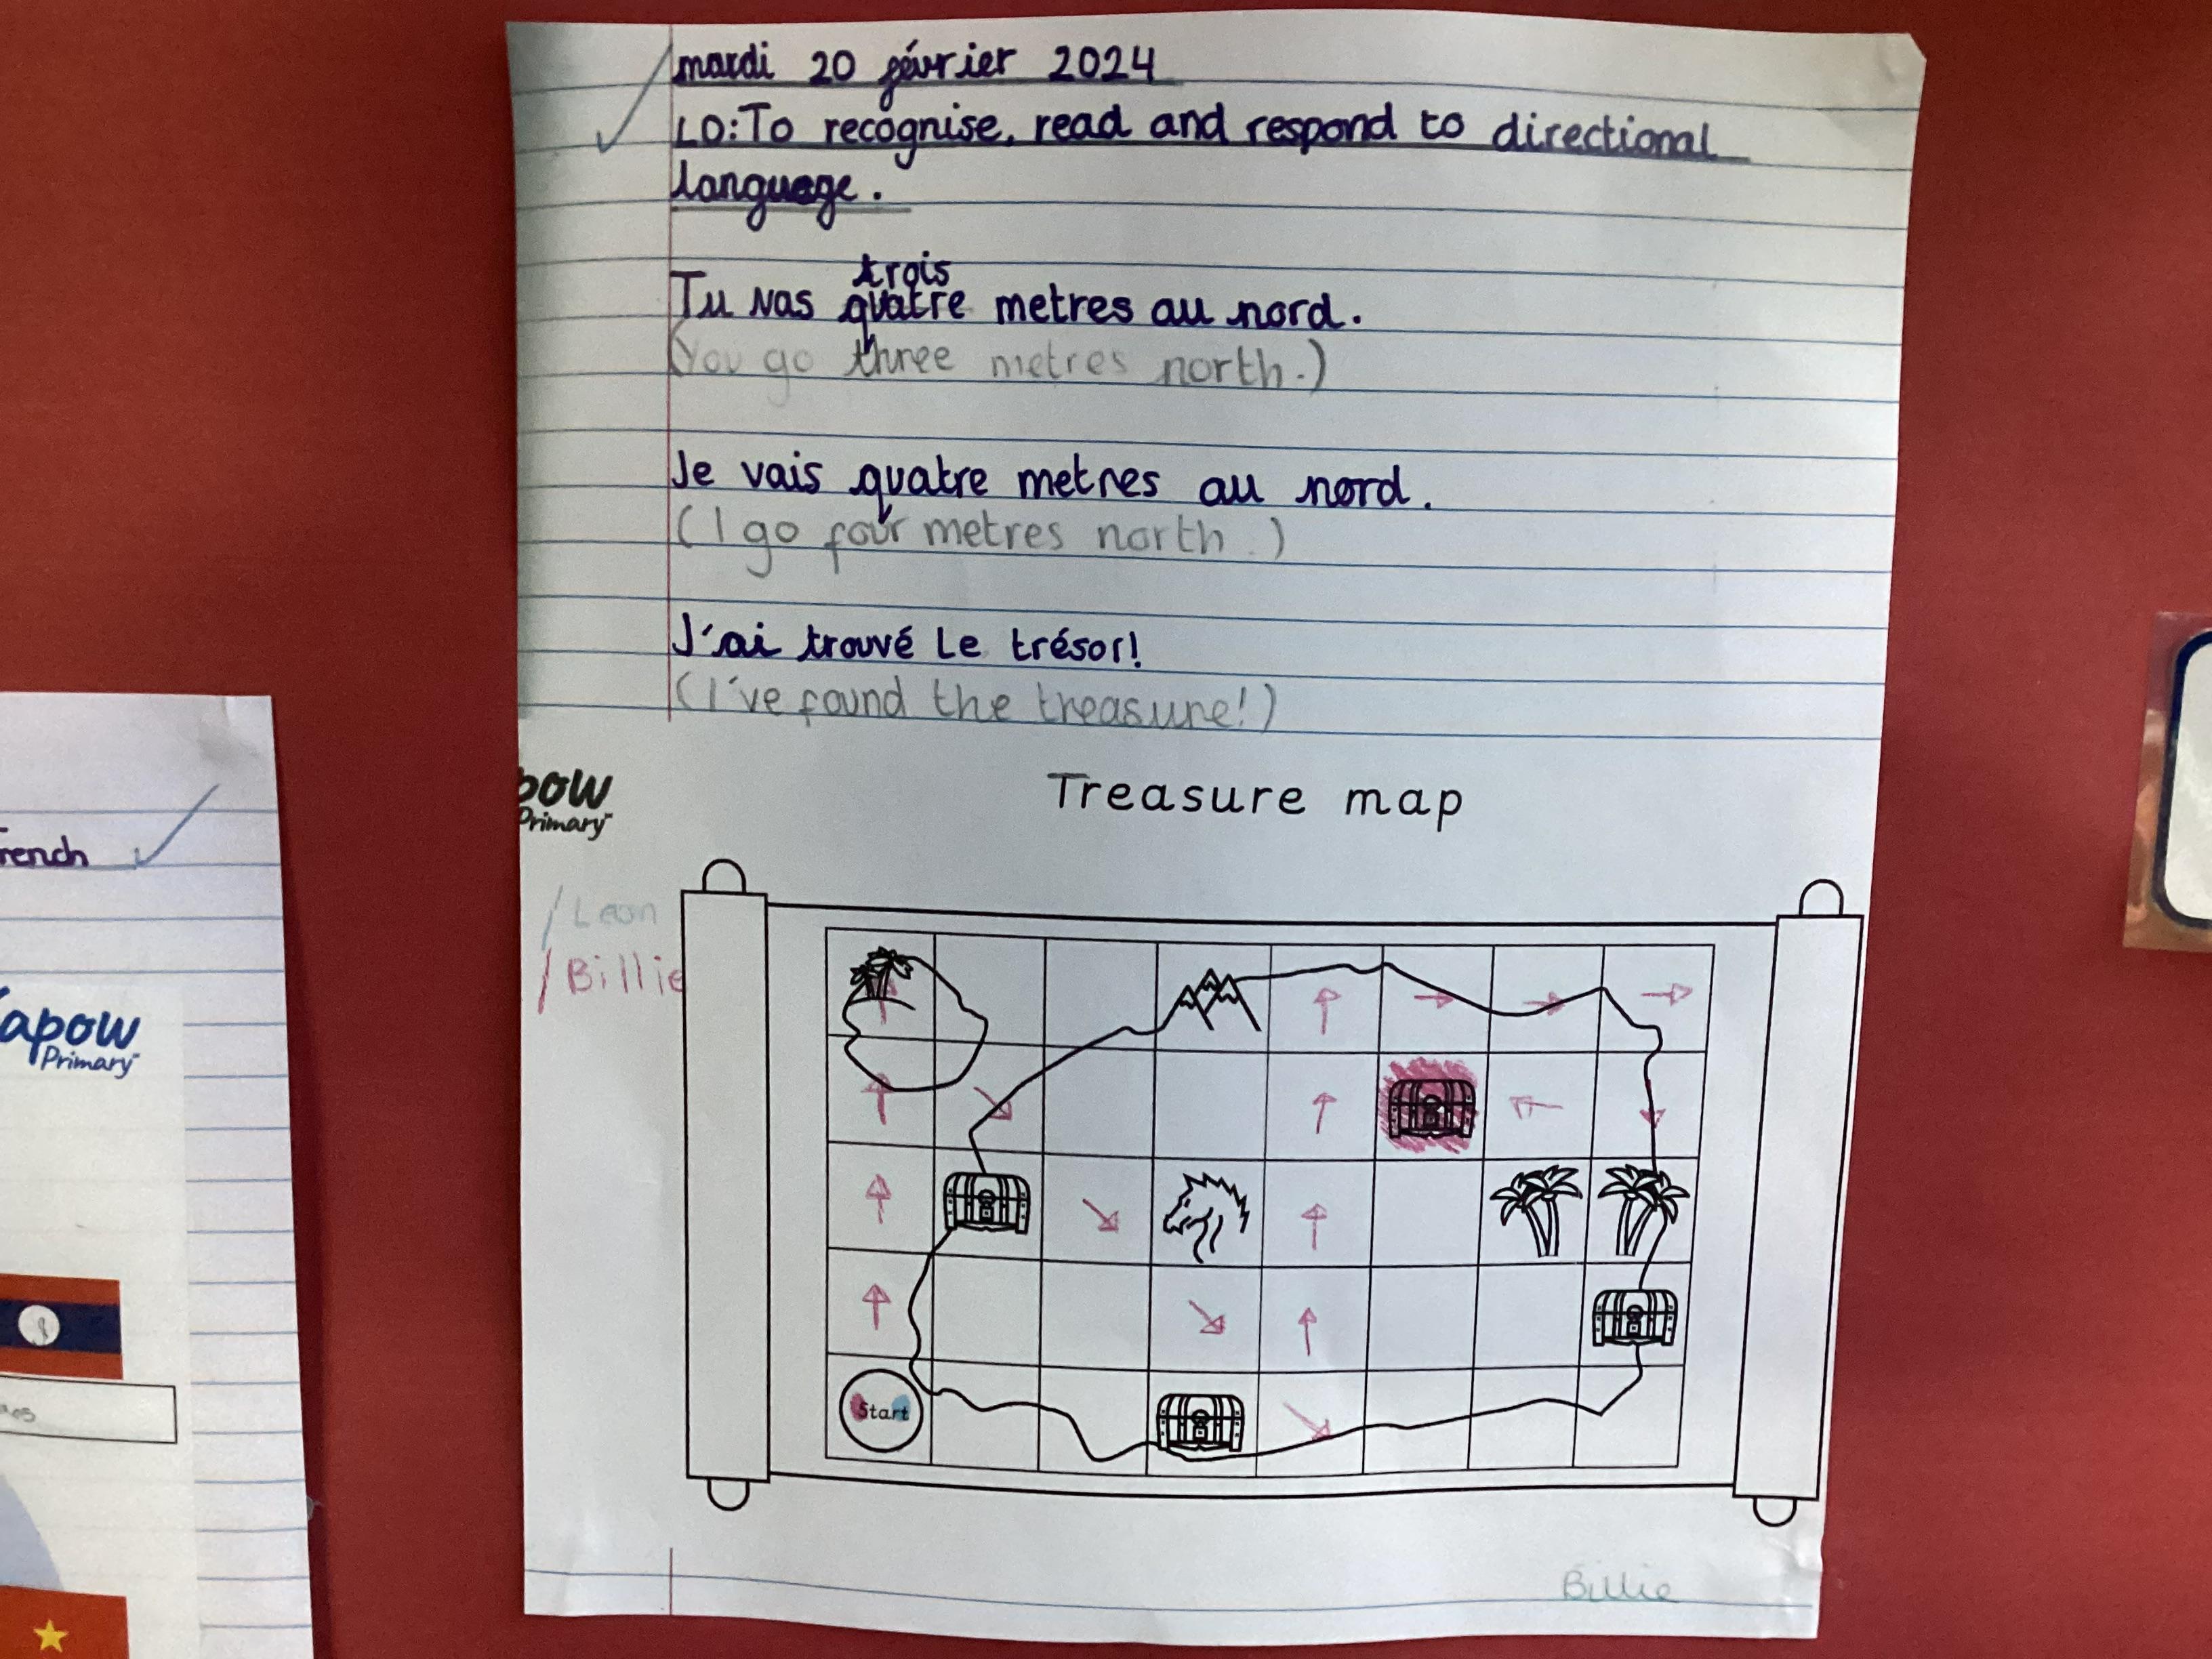 mardi 20 février 2024
LO: To recognise, read and respond to directional
language.
trois
Tu vas quatre metres au nord.
(You go three metres north.)
Je vais quatre metres au nord.
(I go four metres north.)
J'ai trouvé le trésor!
(I've found the treasure!)
pow
Primary
Treasure map
Leon
Billie
Start
Billie
rench
apow
Primary